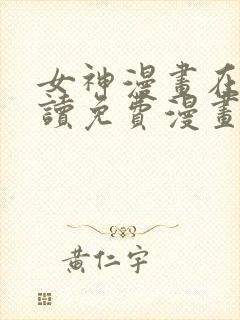 女神漫畫在
讀免費漫畫
黃仁宇